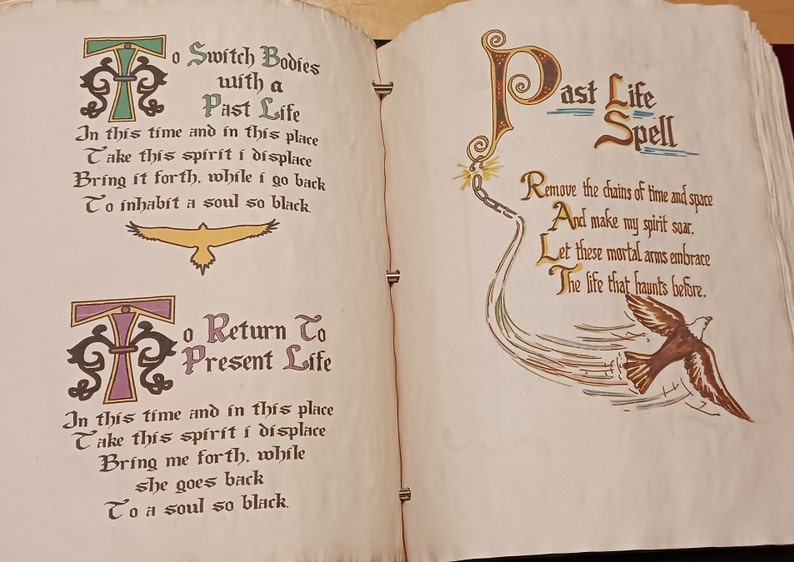 To Switch Bodies
with a
Past Life
In this time and in this place
Take this spirit i displace
Bring it forth, while i go back
To inhabit a soul so black.
To Return To
Present Life
In this time and in this place
Take this spirit i displace
Bring me forth, while
she goes back
To a soul so black.
Past Life
Spell
Remove the chains of time and space
And make my spirit soar.
Let these mortal arms embrace
The life that haunts before.